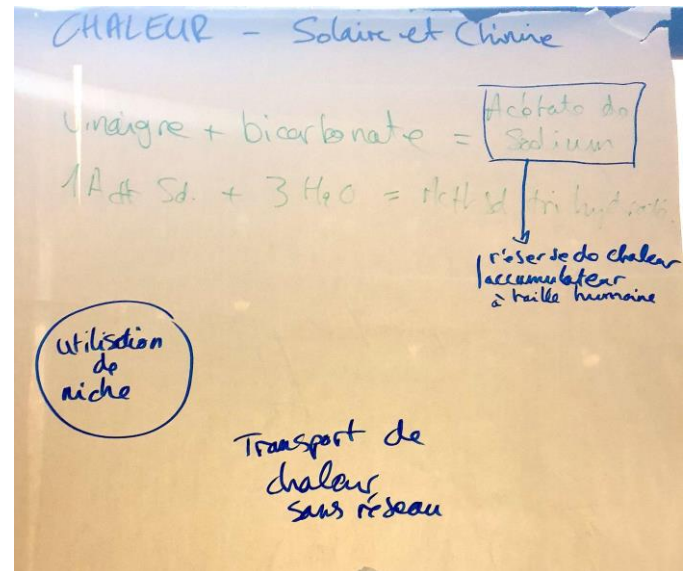 CHALEUR - Solaire et Chimie
Vinaigre + bicarbonate = Acétate de
Sodium
1 Act Sd. + 3 H2O = Act Sd tri hydraté
réserve de chaleur
accumulateur
à taille humaine
utilisation
de
niche
Transport de
chaleur
sans réseau